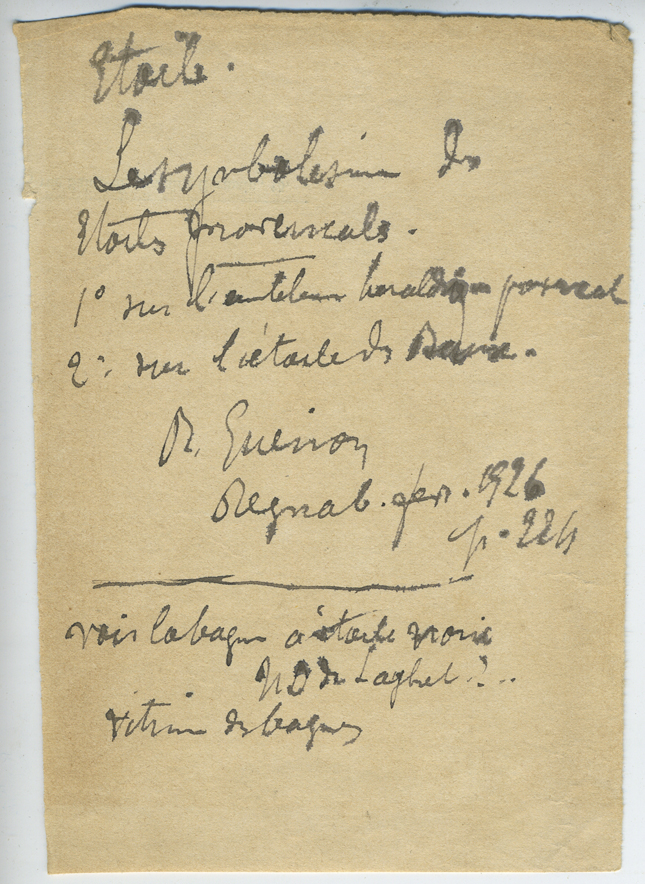 Etoile.
Le symbolisme des
Etoiles provencales.
1° sur l'
2°: sur l'étoile des Baux.
R. Guenon
Regnab. fevr. 1926
p. 224
voir la bague à étoile
ND de Laghet ?..
vitrine des bagues